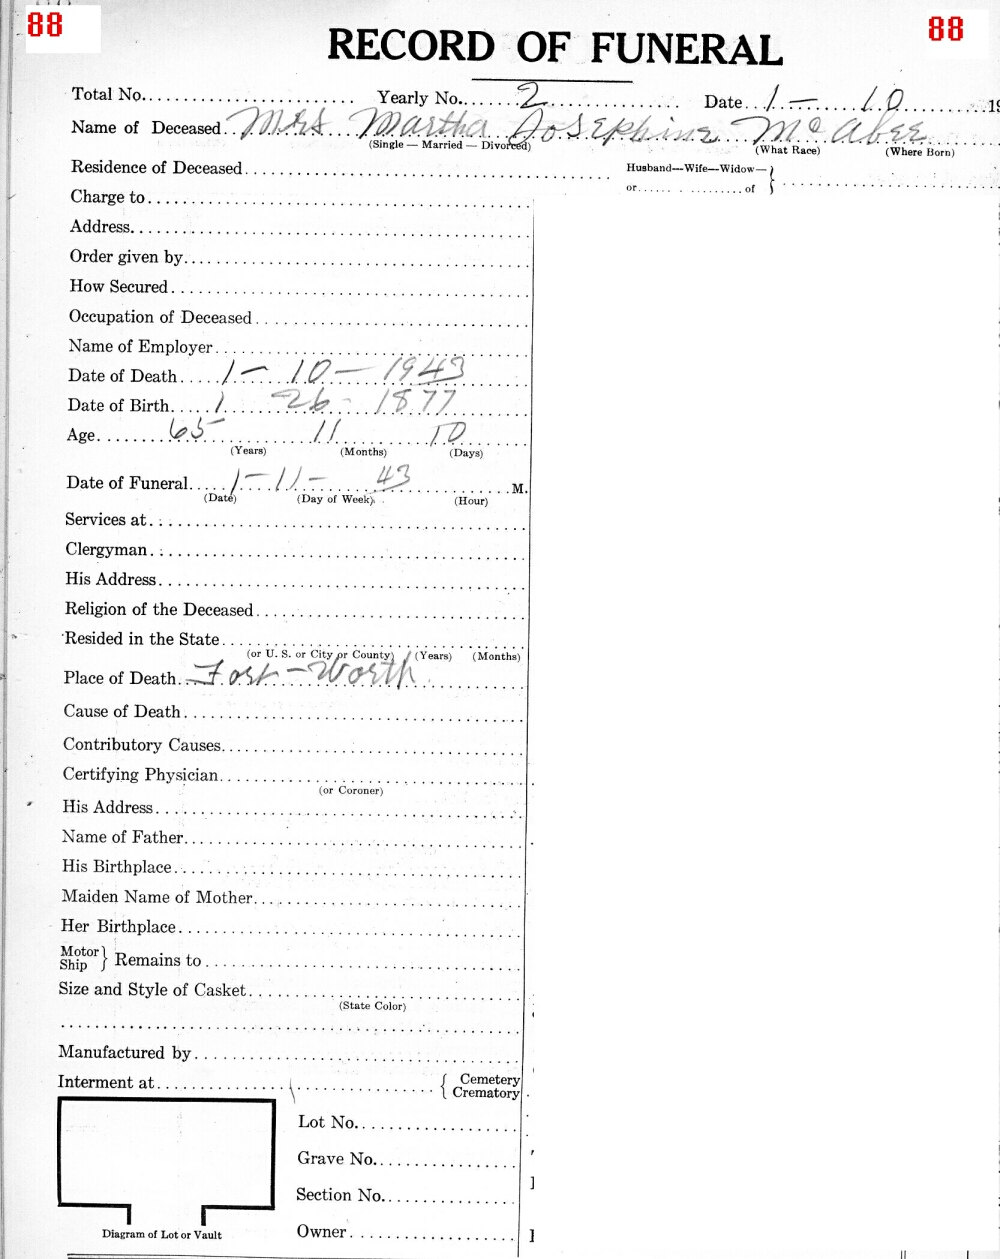 88 88
RECORD OF FUNERAL
Total No. Yearly No. 2 Date 1 - 10 19
Name of Deceased Mrs Martha Josephine McAbee
(Single — Married — Divorced) (What Race) (Where Born)
Residence of Deceased Husband—Wife—Widow—}
or of
Charge to
Address
Order given by
How Secured
Occupation of Deceased
Name of Employer
Date of Death 1 - 10 - 1943
Date of Birth 1 26 - 1877
Age 65 11 10
(Years) (Months) (Days)
Date of Funeral 1 - 11 - 43 M.
(Date) (Day of Week) (Hour)
Services at
Clergyman
His Address
Religion of the Deceased
Resided in the State
(or U. S. or City or County) (Years) (Months)
Place of Death Fort - Worth
Cause of Death
Contributory Causes
Certifying Physician
(or Coroner)
His Address
Name of Father
His Birthplace
Maiden Name of Mother
Her Birthplace
Motor
Ship } Remains to
Size and Style of Casket
(State Color)
Manufactured by
Interment at { Cemetery
Crematory
Lot No.
Grave No.
Section No.
Owner
Diagram of Lot or Vault